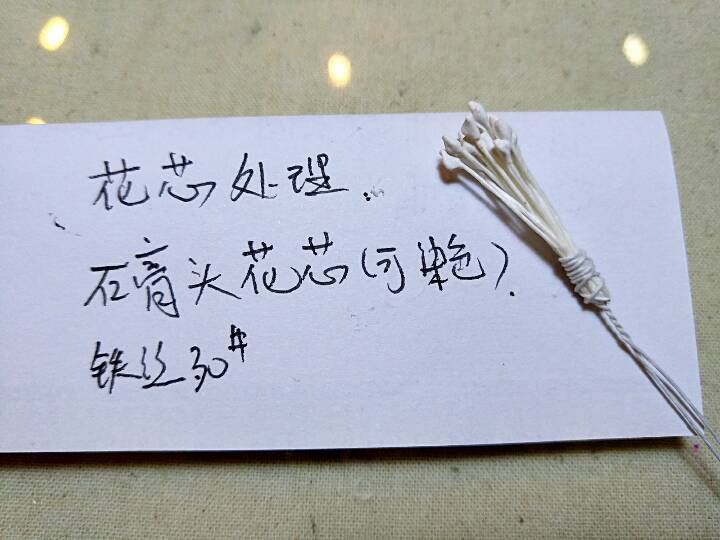 花芯处理.
石膏头花芯(可染色).
铁丝30#